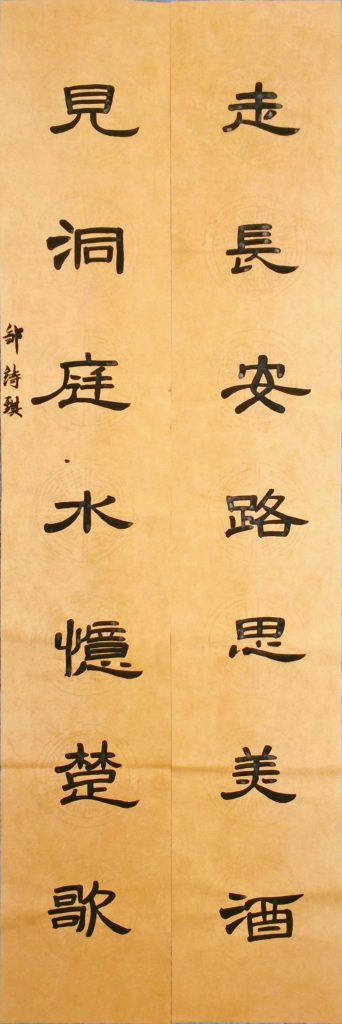 走長安路思美酒
見洞庭水憶楚歌
邹詩琪